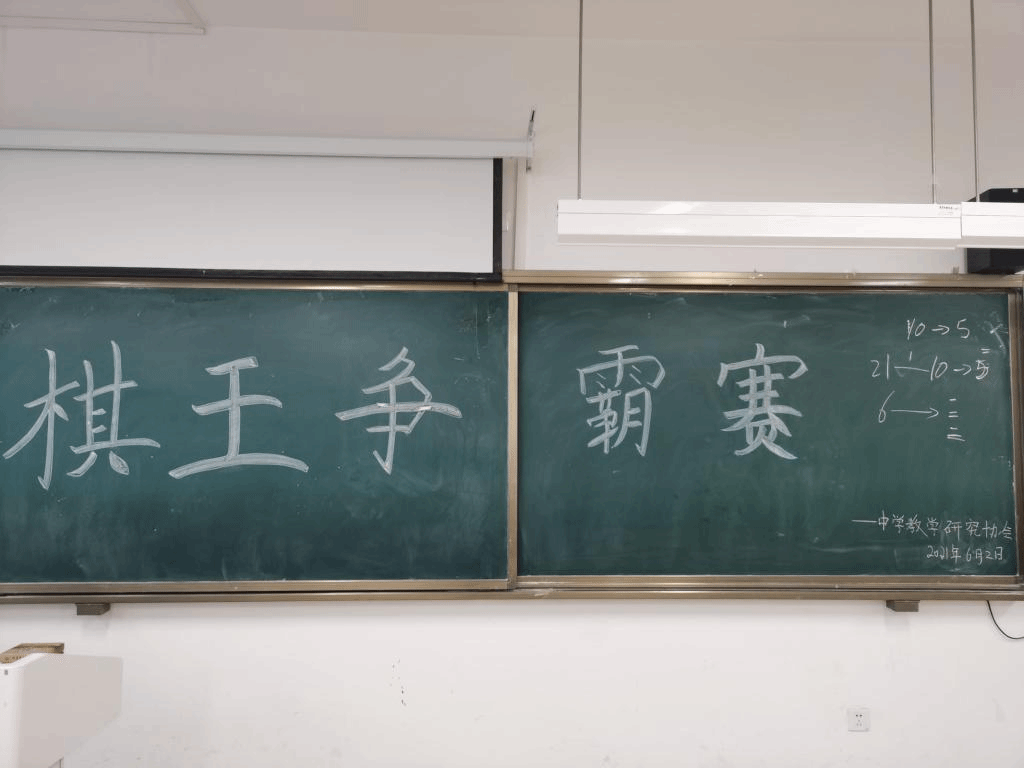 棋王争霸赛
10→5
21←10→5
6→
一中学教学研究协会
2021年6月2日